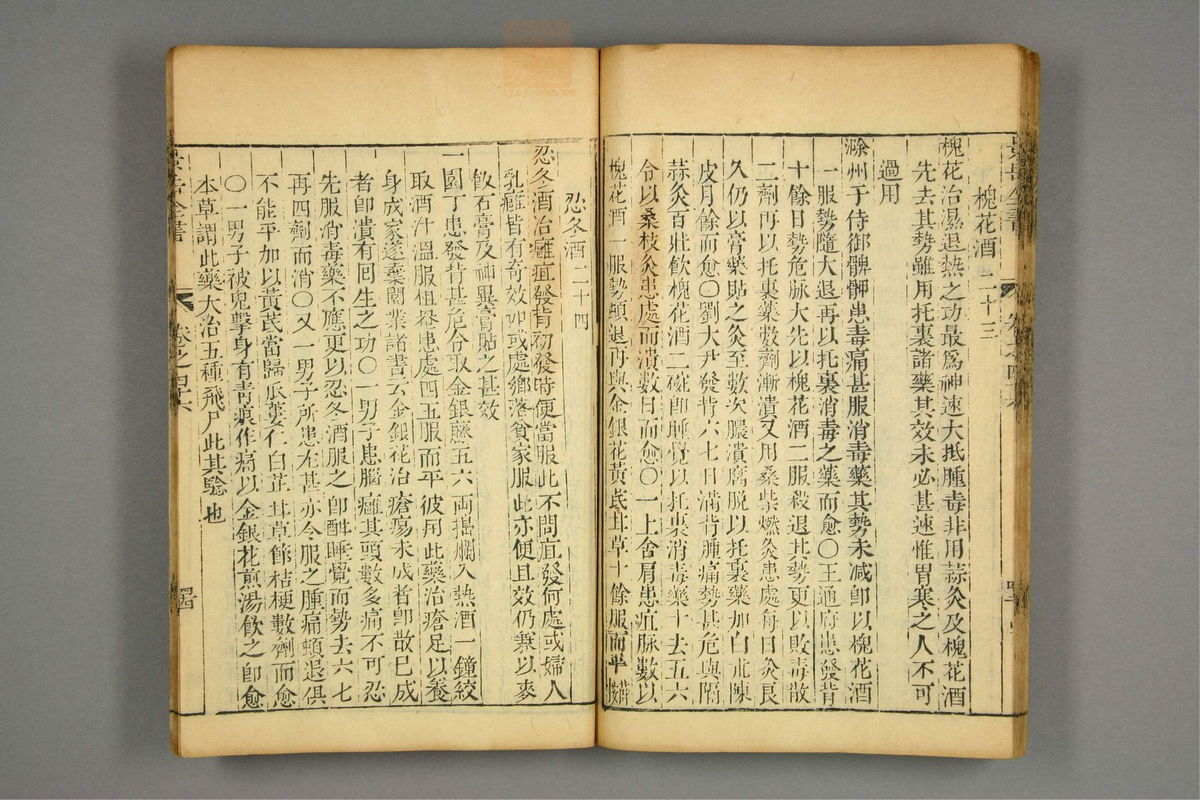 槐花酒二十三
槐花治濕退熱之功最爲神速大抵腫毒非用蒜灸及槐花酒
先去其勢雖用托裏諸藥其效未必甚速惟胃寒之人不可
過用
滁州于侍御髀胛患毒痛甚服消毒藥其勢未减卽以槐花酒
一服勢隨大退再以托裏消毒之藥而愈〇王通府患發背
十餘日勢危脉大先以槐花酒二服殺退其勢更以敗毒散
二劑再以托裏藥數劑漸潰又用桑柴燃灸患處每日灸良
久仍以膏藥貼之灸至數次膿潰腐脱以托裏藥加白朮陳
皮月餘而愈〇劉大尹發背六七日滿背腫痛勢甚危與隔
蒜灸百壯飲槐花酒二碗卽睡覺以托裏消毒藥十去五六
令以桑枝灸患處而潰數日而愈〇一上舍肩患疽脉數以
槐花酒一服勢頓退再與金銀花黃芪甘草十餘服而平
忍冬酒二十四
忍冬酒治癰疽發背初發時便當服此不問疽發何處或婦人
乳癰皆有奇效如或處鄉落貧家服此亦便且效仍兼以麥
飯石膏及神異膏貼之甚效
一園丁患發背甚危令取金銀藤五六両搗爛入熱酒一鐘絞
取酒汁温服柤罨患處四五服而平彼用此藥治瘡足以養
身成家遂棄園業諸書云金銀花治瘡瘍未成者卽散已成
者卽潰有回生之功〇一男子患腦癰其頭數多痛不可忍
先服消毒藥不應更以忍冬酒服之卽酣睡覺而勢去六七
再四劑而消〇又一男子所患尤甚亦令服之腫痛頓退但
不能平加以黃芪當歸瓜蔞仁白芷甘草節桔梗數劑而愈
〇一男子被兇擊身有青痕作痛以金銀花煎湯飲之卽愈
本草謂此藥大治五種飛尸此其驗也